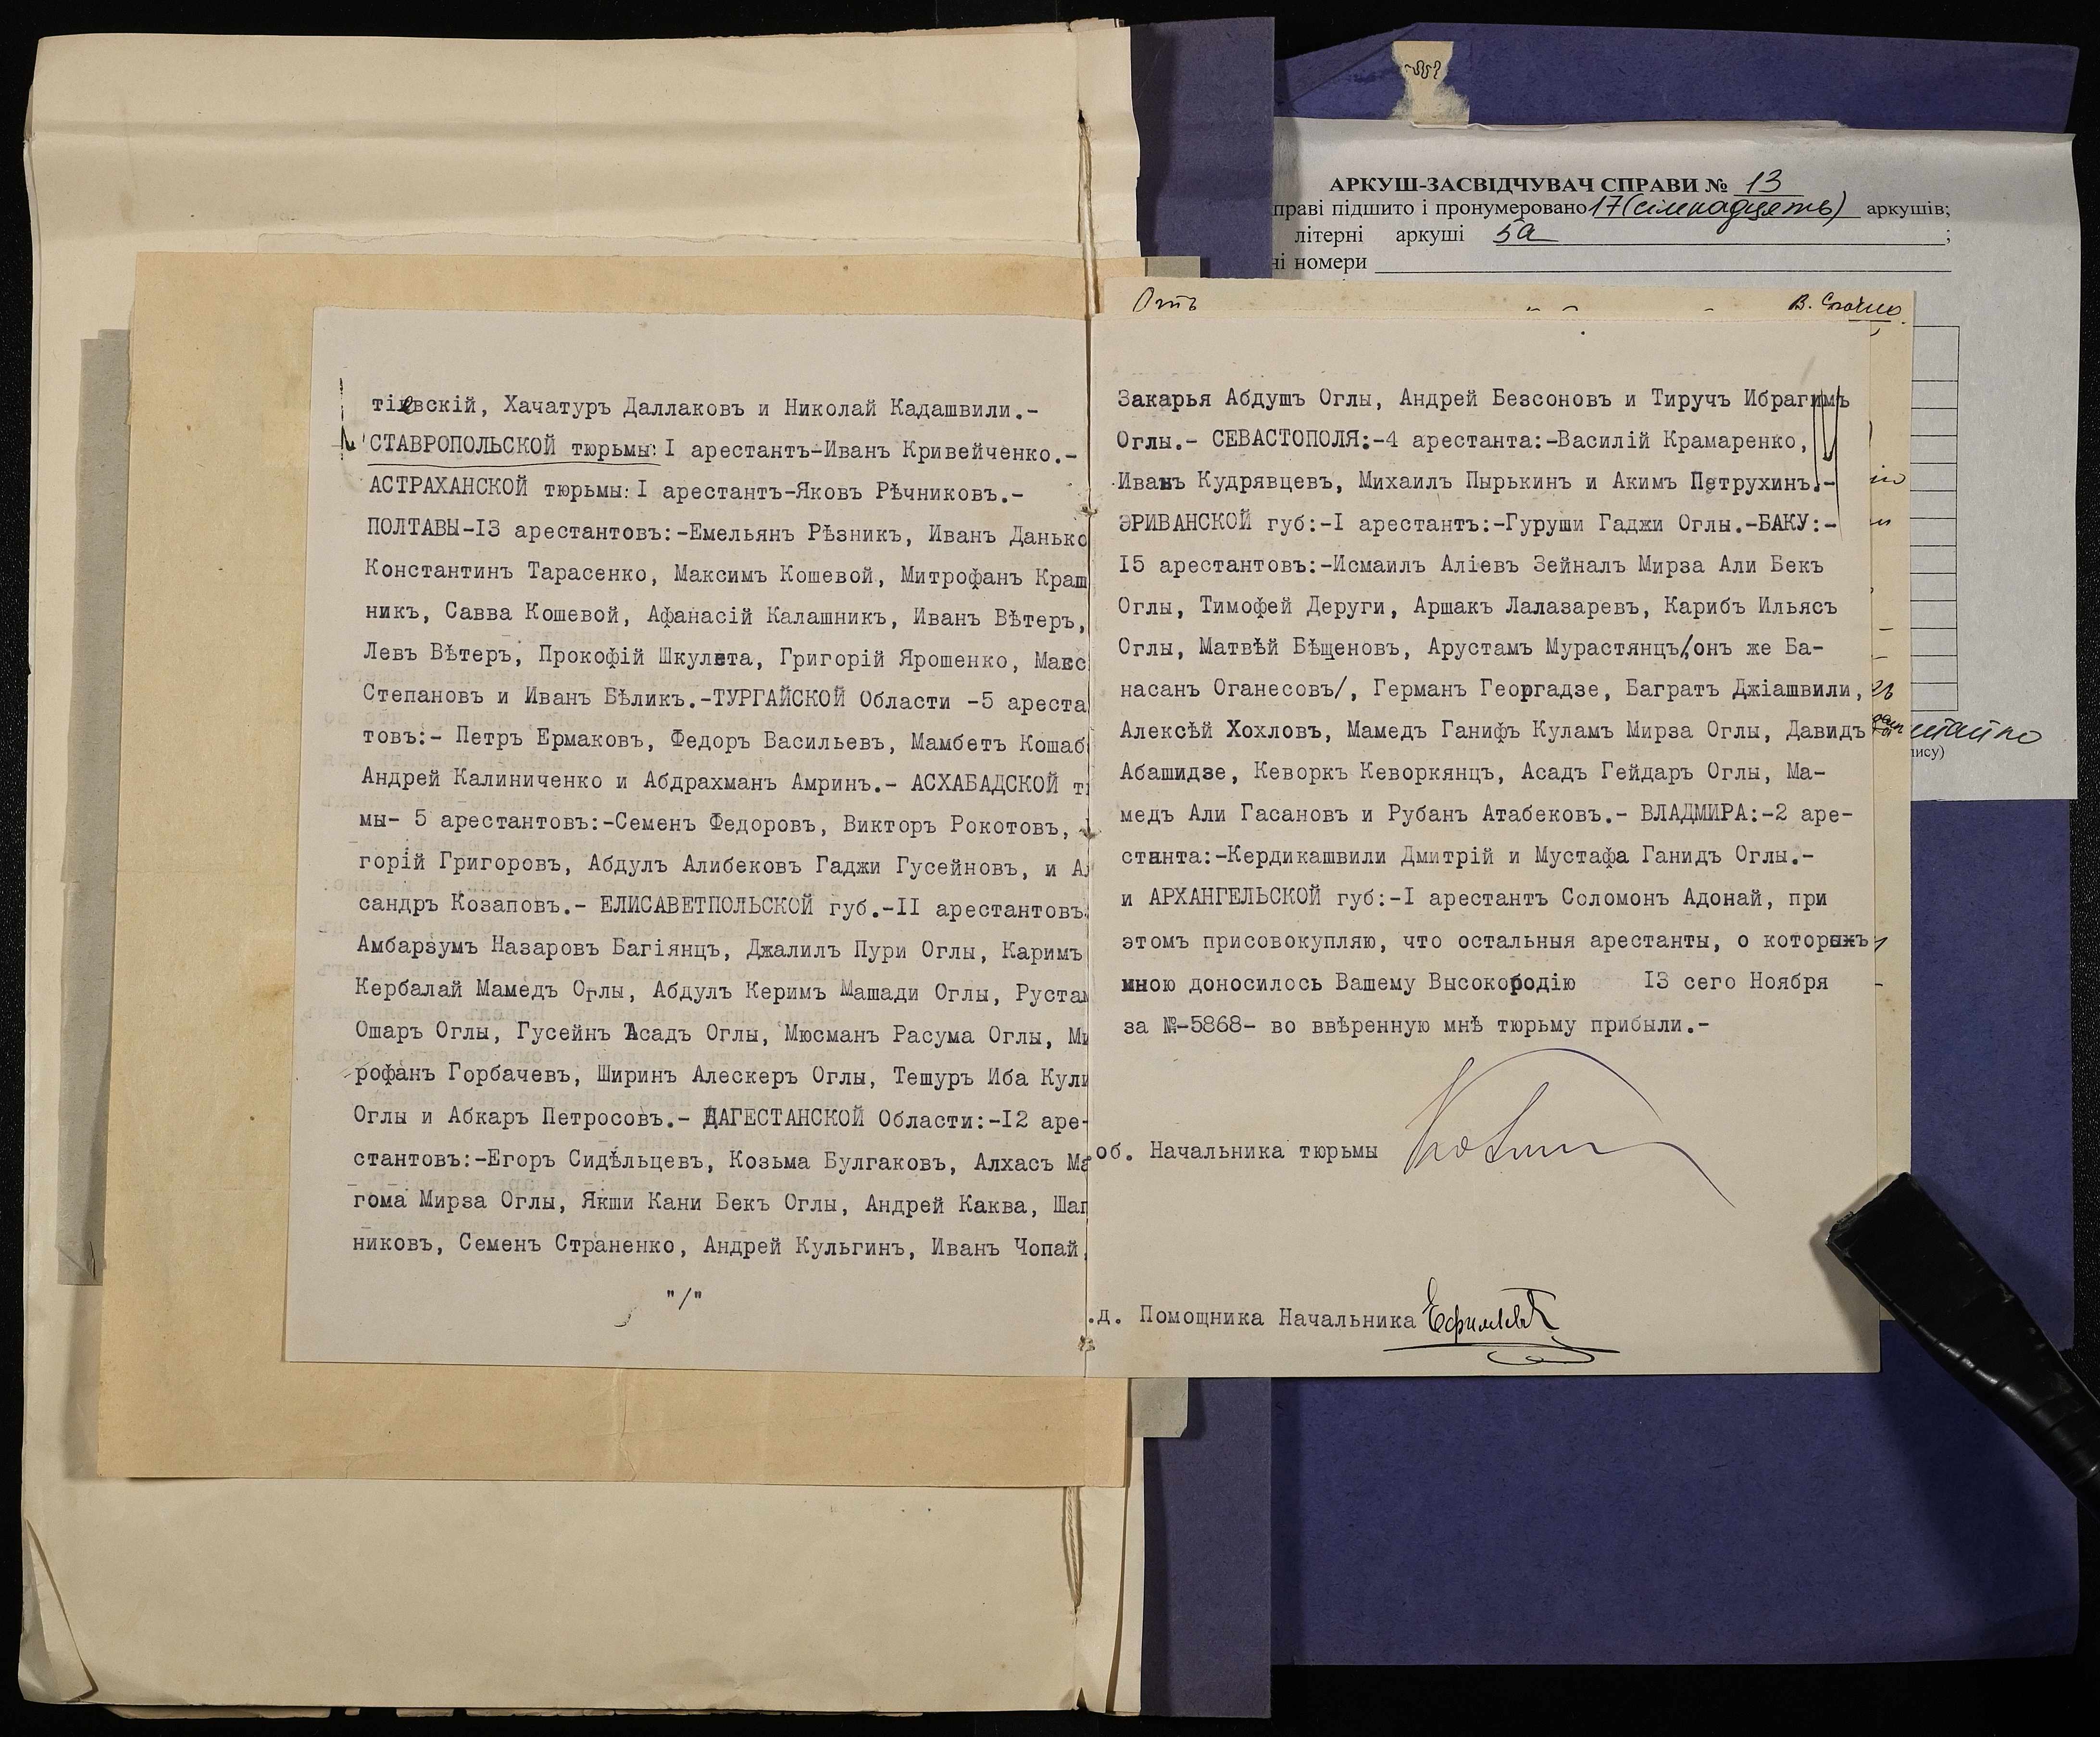 тіевскій, Хачатуръ Даллаковъ и Николай Кадашвили.-
СТАВРОПОЛЬСКОЙ тюрьмы: I арестантъ-Иванъ Кривейченко.-
АСТРАХАНСКОЙ тюрьмы: I арестантъ-Яковъ Рѣчниковъ.-
ПОЛТАВЫ-I3 арестантовъ:-Емельянъ Рѣзникъ, Иванъ Данько
Константинъ Тарасенко, Максимъ Кошевой, Митрофанъ Краш
никъ, Савва Кошевой, Афанасій Калашникъ, Иванъ Вѣтеръ,
Левъ Вѣтеръ, Прокофій Шкулета, Григорій Ярошенко, Макс
Степановъ и Иванъ Бѣликъ.-ТУРГАЙСКОЙ Области -5 ареста
товъ:- Петръ Ермаковъ, Федоръ Васильевъ, Мамбетъ Кошаб
Андрей Калиниченко и Абдрахманъ Амринъ.- АСХАБАДСКОЙ т
мы- 5 арестантовъ:-Семенъ Федоровъ, Викторъ Рокотовъ,
горій Григоровъ, Абдулъ Алибековъ Гаджи Гусейновъ, и А
сандръ Козаповъ.- ЕЛИСАВЕТПОЛЬСКОЙ губ.-II арестантовъ:
Амбарзумъ Назаровъ Багіянцъ, Джалилъ Пури Оглы, Каримъ
Кербалай Мамедъ Оглы, Абдулъ Керимъ Машади Оглы, Рустам
Ошаръ Оглы, Гусейнъ Асадъ Оглы, Мюсманъ Расума Оглы, Ми
рофанъ Горбачевъ, Ширинъ Алескеръ Оглы, Тешуръ Иба Кули
Оглы и Абкаръ Петросовъ.- ДАГЕСТАНСКОЙ Области:-I2 аре-
стантовъ:-Егоръ Сидѣльцевъ, Козьма Булгаковъ, Алхасъ Ма
гома Мирза Оглы, Якши Кани Бекъ Оглы, Андрей Каква, Шап
никовъ, Семенъ Страненко, Андрей Кульгинъ, Иванъ Чопай,
"/"
АРКУШ-ЗАСВІДЧУВАЧ СПРАВИ № 13
праві підшито і пронумеровано 17 (сімнадцять) аркушів;
літерні аркуші 5а ;
ні номери
Отъ
Закарья Абдушъ Оглы, Андрей Безсоновъ и Тиручъ Ибрагимъ
Оглы.- СЕВАСТОПОЛЯ:-4 арестанта:-Василій Крамаренко,
Иванъ Кудрявцевъ, Михаилъ Пырькинъ и Акимъ Петрухинъ.-
ЭРИВАНСКОЙ губ:-I арестантъ:-Гуруши Гаджи Оглы.-БАКУ:-
I5 арестантовъ:-Исмаилъ Аліевъ Зейналъ Мирза Али Бекъ
Оглы, Тимофей Деруги, Аршакъ Лалазаревъ, Карибъ Ильясъ
Оглы, Матвѣй Бѣщеновъ, Арустамъ Мурастянцъ/онъ же Ба-
насанъ Оганесовъ/, Германъ Георгадзе, Багратъ Джіашвили,
Алексѣй Хохловъ, Мамедъ Ганифъ Куламъ Мирза Оглы, Давидъ
Абашидзе, Кеворкъ Кеворкянцъ, Асадъ Гейдаръ Оглы, Ма-
медъ Али Гасановъ и Рубанъ Атабековъ.- ВЛАДМИРА:-2 аре-
станта:-Кердикашвили Дмитрій и Мустафа Ганидъ Оглы.-
и АРХАНГЕЛЬСКОЙ губ:-I арестантъ Соломонъ Адонай, при
этомъ присовокупляю, что остальныя арестанты, о которыхъ
мною доносилось Вашему Высокородію I3 сего Ноября
за №-5868- во ввѣренную мнѣ тюрьму прибыли.-
об. Начальника тюрьмы
.д. Помощника Начальника Ефимовъ
пису)